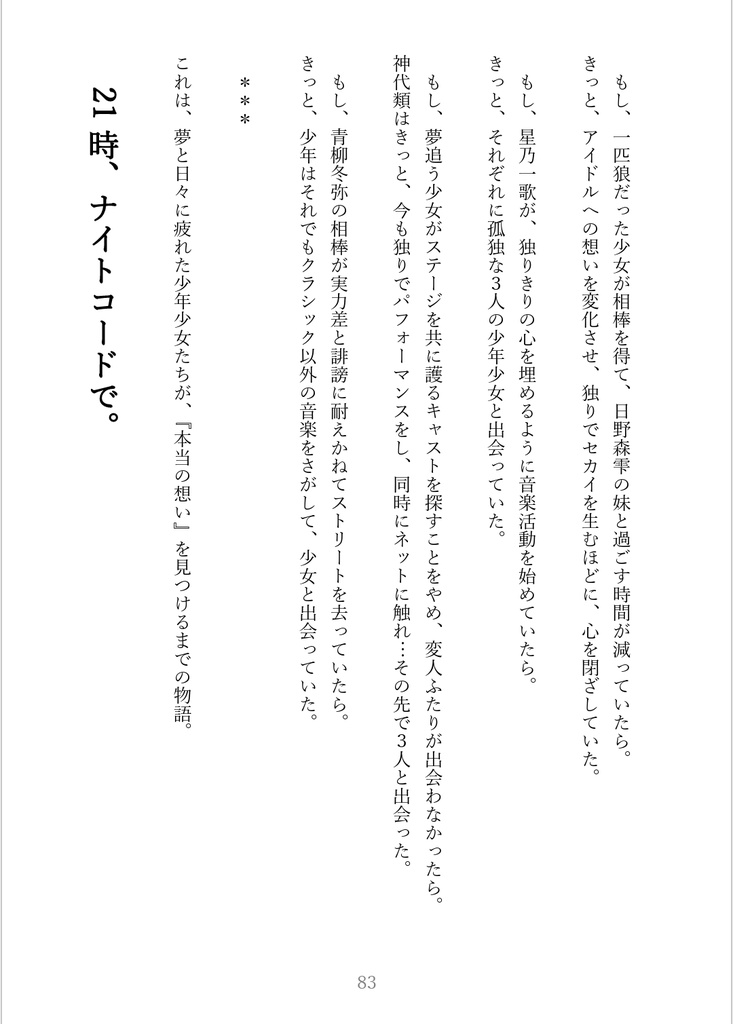 もし、一匹狼だった少女が相棒を得て、日野森雫の妹と過ごす時間が減っていたら。
きっと、アイドルへの想いを変化させ、独りでセカイを生むほどに、心を閉ざしていた。
もし、星乃一歌が、独りきりの心を埋めるように音楽活動を始めていたら。
きっと、それぞれに孤独な3人の少年少女と出会っていた。
もし、夢追う少女がステージを共に護るキャストを探すことをやめ、変人ふたりが出会わなかったら。
神代類はきっと、今も独りでパフォーマンスをし、同時にネットに触れ…その先で3人と出会った。
もし、青柳冬弥の相棒が実力差と誹謗に耐えかねてストリートを去っていたら。
きっと、少年はそれでもクラシック以外の音楽をさがして、少女と出会っていた。
***
これは、夢と日々に疲れた少年少女たちが、『本当の想い』を見つけるまでの物語。
21時、ナイトコードで。
83